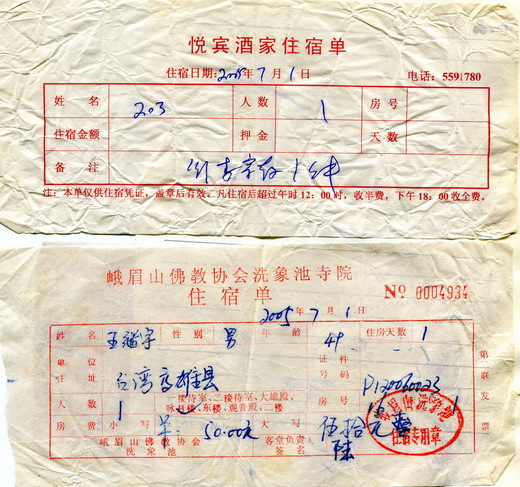 悦宾酒家住宿单
住宿日期:2005年7月1日 电话:5591780
姓名 203 人数 1 房号
住宿金额 押金 天数
备注 行李寄存1件
注:本单仅供住宿凭证,盖章后有效。凡住宿后超过午时12:00时,收半费,下午18:00收全费。
峨眉山佛教协会洗象池寺院
住宿单 № 0004934
2005年7月1日
姓名 性别 男 年龄 49 住房天数 1
单位 证件
住址 台湾高雄县 号码
人数 1 一接待室、二接待室、大雄殿、 房号
咏月楼、东楼、观音殿、二楼
房费 小写 50.00 大写 伍拾元
峨眉山佛教协会 客堂负责人 陆
洗象池 签名
住宿专用章
第联发票